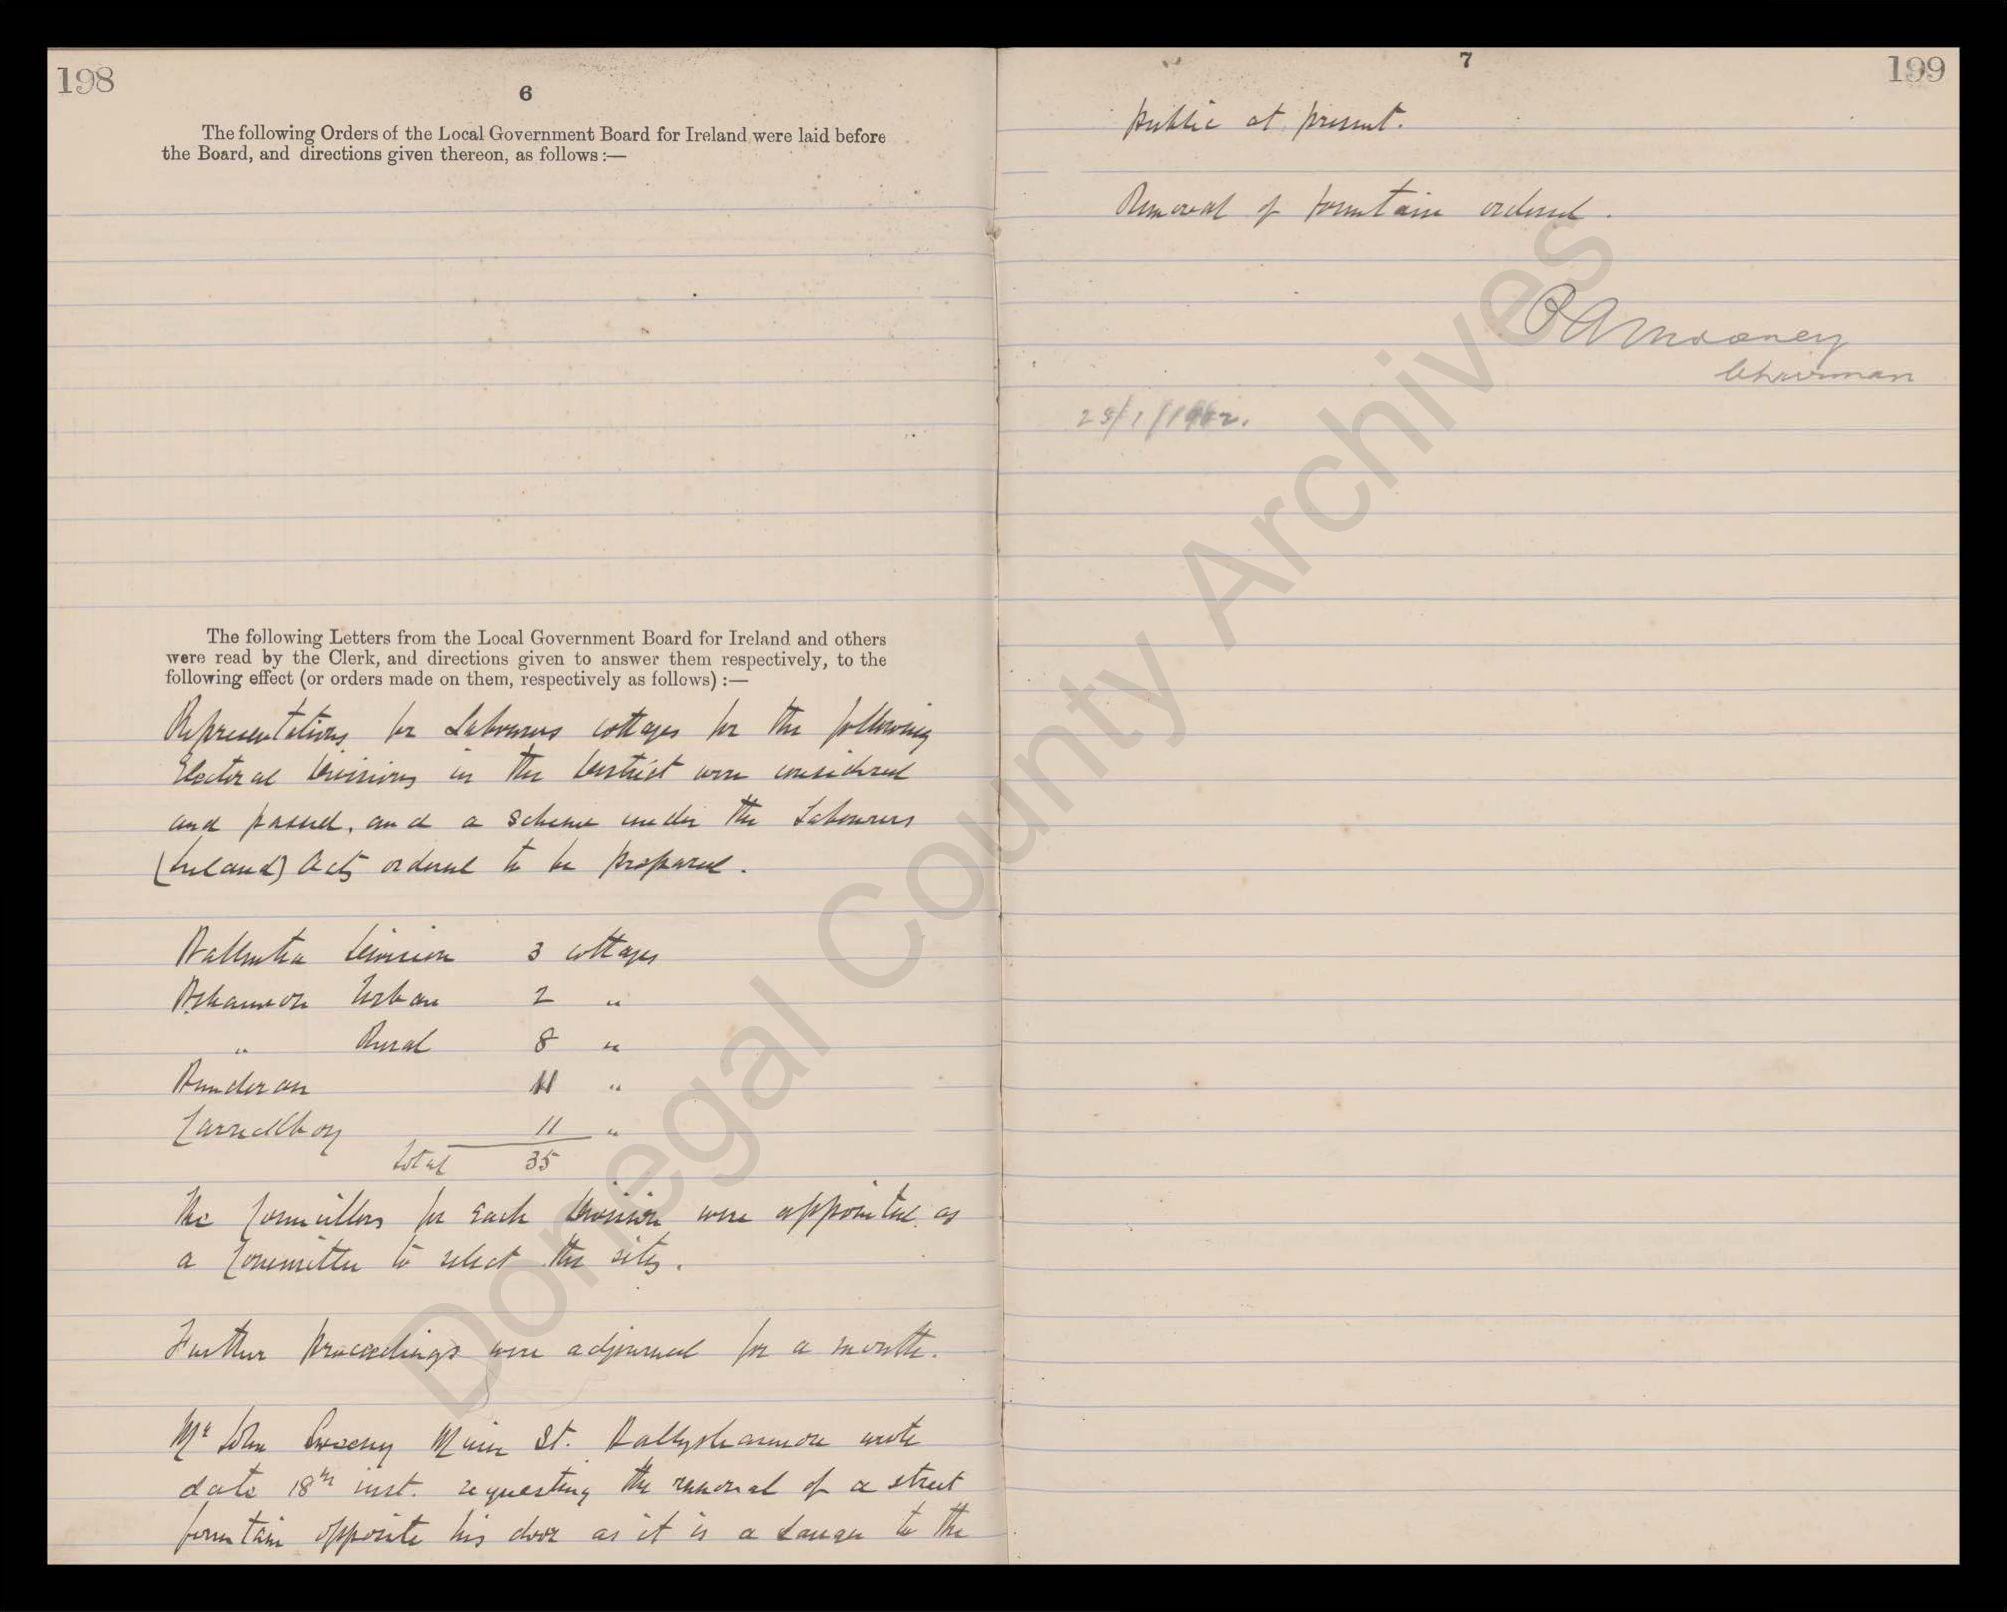 198
6
The following Orders of the Local Government Board for Ireland were laid before
the Board, and directions given thereon, as follows :—
The following Letters from the Local Government Board for Ireland and others
were read by the Clerk, and directions given to answer them respectively, to the
following effect (or orders made on them, respectively as follows) :—
Representations for Labourers cottages for the following
Electoral Divisions in the District were considered
and passed, and a scheme under the Labourers
(Ireland) Acts ordered to be prepared.
Division 3 cottages
Urban 2 "
" Rural 8 "
Bundoran 11 "
Carrickboy 11 "
Total 35
The Councillors for each Division were appointed as
a Committee to select the sites.
Further proceedings were adjourned for a month.
Mr John Sweeny Main St. Ballyshannon wrote
date 18th inst. requesting the removal of a street
fountain opposite his door as it is a danger to the
199
7
public at present.
Removal of fountain ordered.
Mooney
Chairman
Donegal County Archives